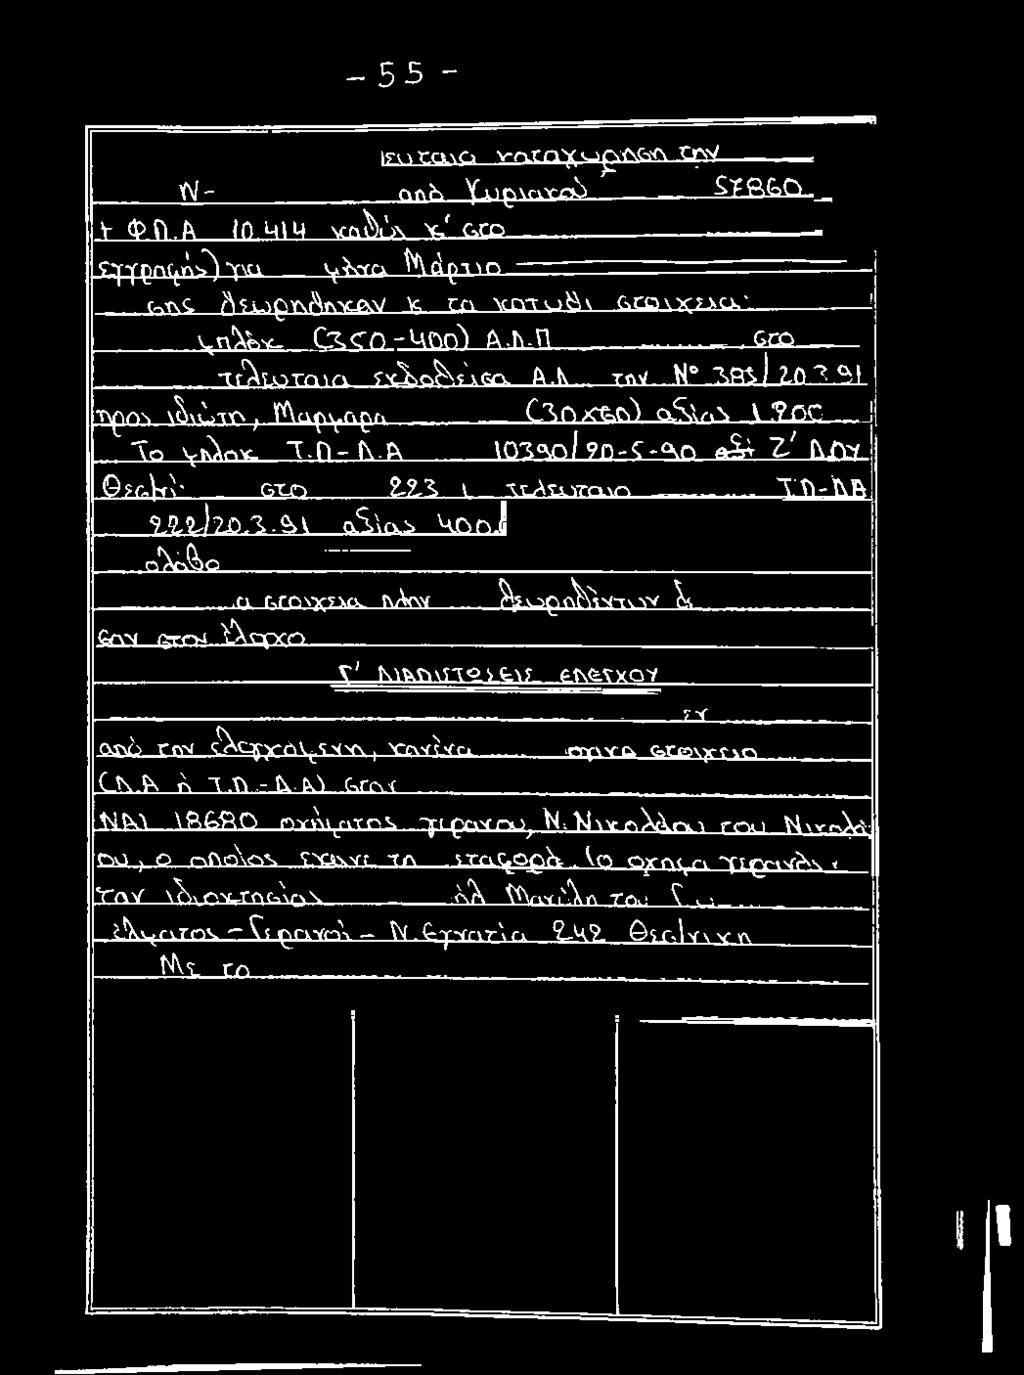 - 55 -
ευταια καταχωρηση την
Ν- από Κυριακού 57860
+ Φ.Π.Α 10.414 καθώς κ' στο
εγγραφής) για μήνα Μάρτιο
σης θεωρήθηκαν κ τα κατωθι στοιχεια:
μπλόκ (350-400) Α.Λ.Π στο
τελευταια εκδοθείσα Α.Λ. την Νο 385/20.3.91
προς ιδιώτη, Μαρμαρα (30χ60) αξίας 1.200
Το μπλοκ Τ.Π-Δ.Α 10390/20-5-90 Ζ' ΔΟΥ
Θεσ/κί· στο 223 τελευταιο Τ.Π-ΔΑ
222/20.3.91 αξίας 400
αλάβα
α στοιχεια πλην θεωρηθέντων δε
σαν στον έλεγχο
Γ' ΔΙΑΠΙΣΤΩΣΕΙΣ ΕΛΕΓΧΟΥ
εν
από τον ελεγχόμενη, κανένα στοιχειο
(Δ.Α ή Τ.Π.-Δ.Α) στον
ΝΑΙ 18680 οχήματος γερανου, Ν. Νικολάου του Νικολά
ου, ο οποίος έκανε τη εταφορά. Το οχημα γερανός
ταν ιδιοκτησίας Μανώλη του Γ
έλματος - Γερανοί - Ν. Εγνατία 242 Θεσ/νικη
Με το